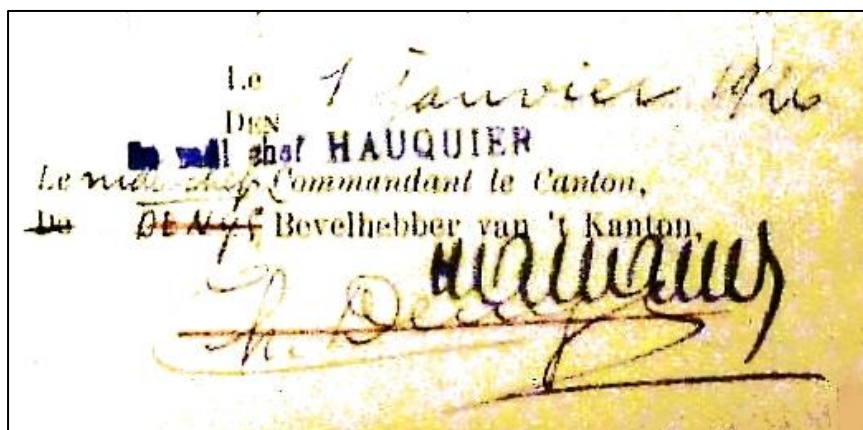 Le 1 Janvier 1926
DEN
Le mdl chef HAUQUIER
Le mdl chef Commandant le Canton,
De DENYS Bevelhebber van 't Kanton,
Ch. Denys